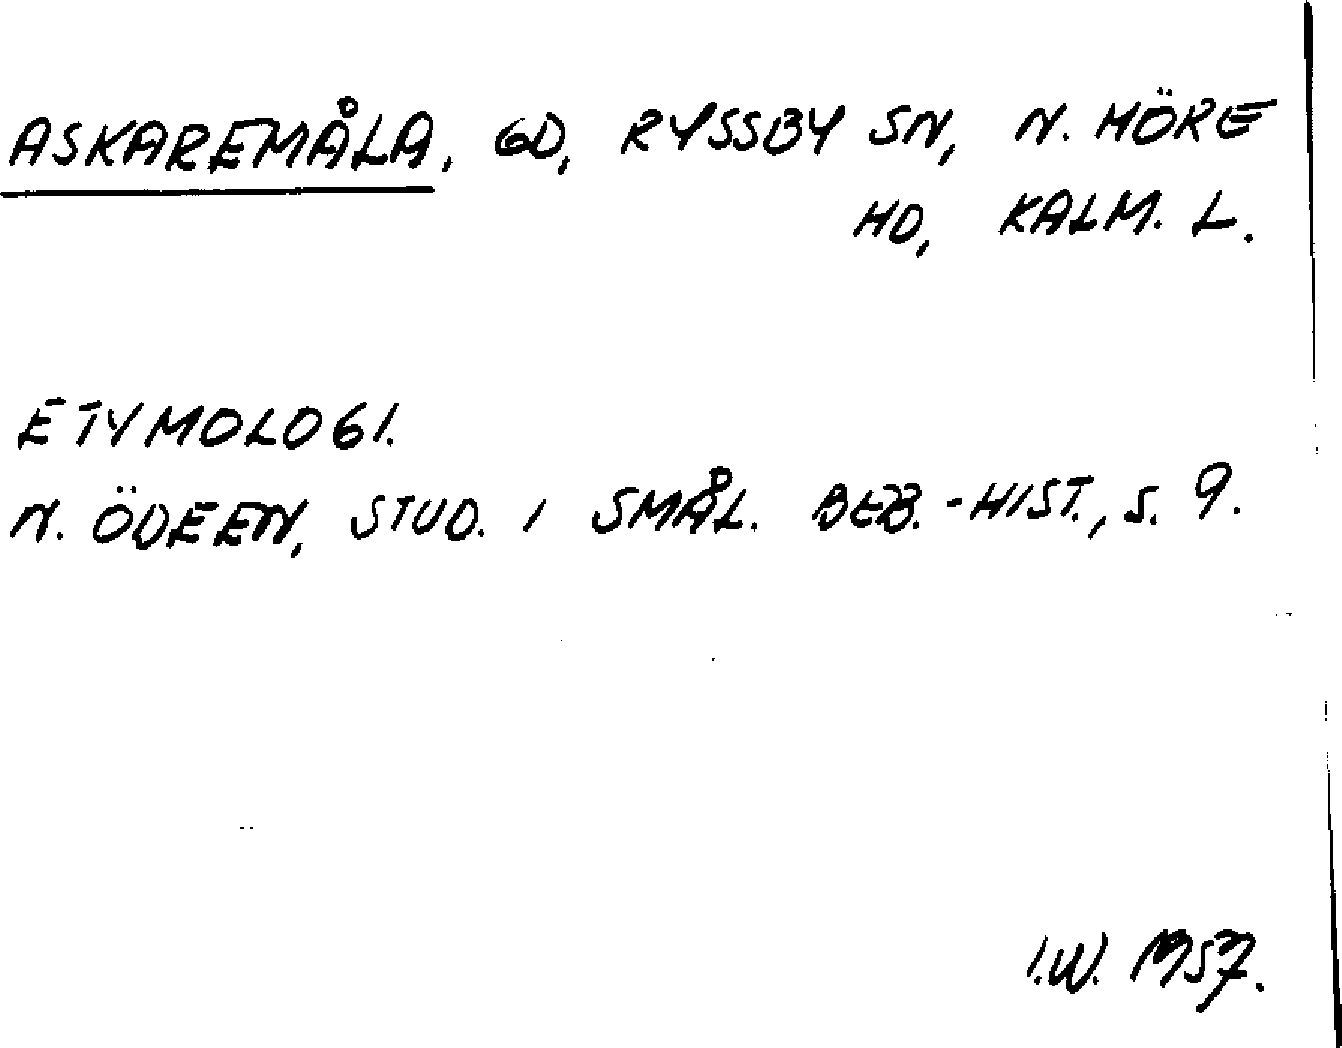 ASKAREMÅLA, GD, RYSSBY SN, N. MÖRE
HD, KALM. L.
ETYMOLOGI.
N. ÖDEEN, STUD. I SMÅL. BEB.-HIST., S. 9.
I.W. 1957.